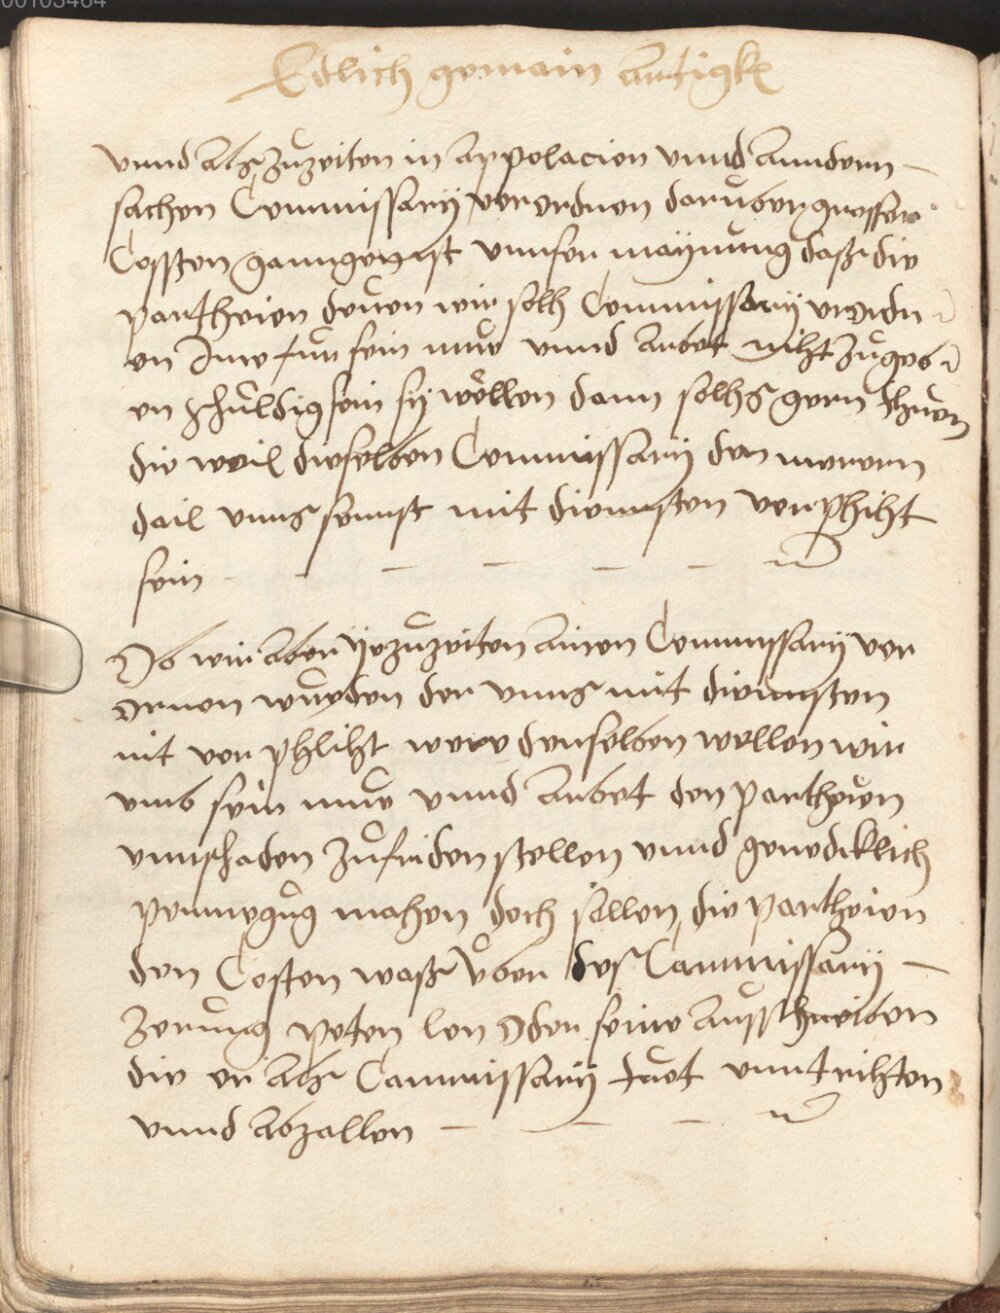 00103464
Etlich gemain Artigkl
vnnd als zuzeiten in appelacien vnnd Anndern
sachen Commissarÿ verordnen daruber grosser
Cossten ganngen ist vnnser maÿnung daß die
partheien denen wir solh Commissarÿ verordn
en Ime fur sein mue vnnd Arbet nicht zugeb
en schuldig sein sÿ wöllen dann solhs gern thuen
die weil dieselben Commissarÿ den merern
dail vnns sonnst mit diennsten verphliht
sein
Ob wir aber ÿe zuzeiten ainen Commissarÿ ver
ornen wurden der vnns mit diennsten
nit verphliht were denselben wellen wir
vmb sein mue vnnd Arbet den partheien
vnnschaden zufriden stellen vnnd genediklich
vernnegug mahen doch sollen die partheien
den Costen waß vber des Cammissarÿ
zerung poten lon oder seine ausschreiben
die er als Cammissarÿ tuet vnntrihten
vnnd abzallen